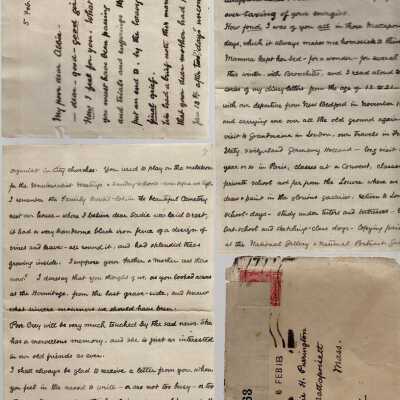 5 Feb.
My poor dear Addie.
- dear - good - good
How I feel for you. What
you must have been
and trials and
put an end to, by the
final grief.
We had a brief note this
that your dear mother had
Jan 12th after two day's
over-taxing of your energies.
How fond I was of you all in those
days, which it always makes me homesick to
Mamma kept her bed - for a wonder - for several
this winter with Bronchitis. and I read aloud to
ones of my diary letters from the age of 12 to 21
with our departure from New Bedford in November
and carrying one over all the old ground again
visit to Grandmama in London, our travels in
Italy Switzerland Germany Holland - long visit
year or so in Paris, classes at a Convent, classes
private school not far from the Louvre where an
drew & paint in the glorious galleries. return to
school-days - study under tutors and tutoresses -
art-school and sketching-class days - Copying
at the National Gallery & National Portrait
organist in City churches. You used to play on the melodeon
for the Meetings & Sunday School
I remember the Family Burial-Lot in the beautiful Cemetery
near our house - where I believe dear Sadie was laid to rest,
it had a very handsome black iron fence of a design of
vines and leaves all round it, and had splendid trees
growing inside. I suppose your father & mother lie there
now? I daresay that you thought of us, as you looked across
at the Hermitage, from the last grave-side, and knew
what sincere mourners we should have been.
Poor will be very much touched by the sad news. She
has a marvellous memory, and she is just as interested
in our old friends as ever.
I shall always be glad to receive a letter from you, when
you feel in the mood to write - & are not too busy - & too
6 FEB 18
H. Purrington
Mattapoisett
Mass.